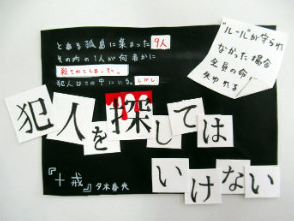 とある孤島に集まった9人
その内の1人が何者かに
殺されてしまった。
犯人はこの中にいる。しかし
"ルール"が守られ
なかった場合
全員の命が
失われる
犯人を探しては
いけない
『十戒』夕木春央